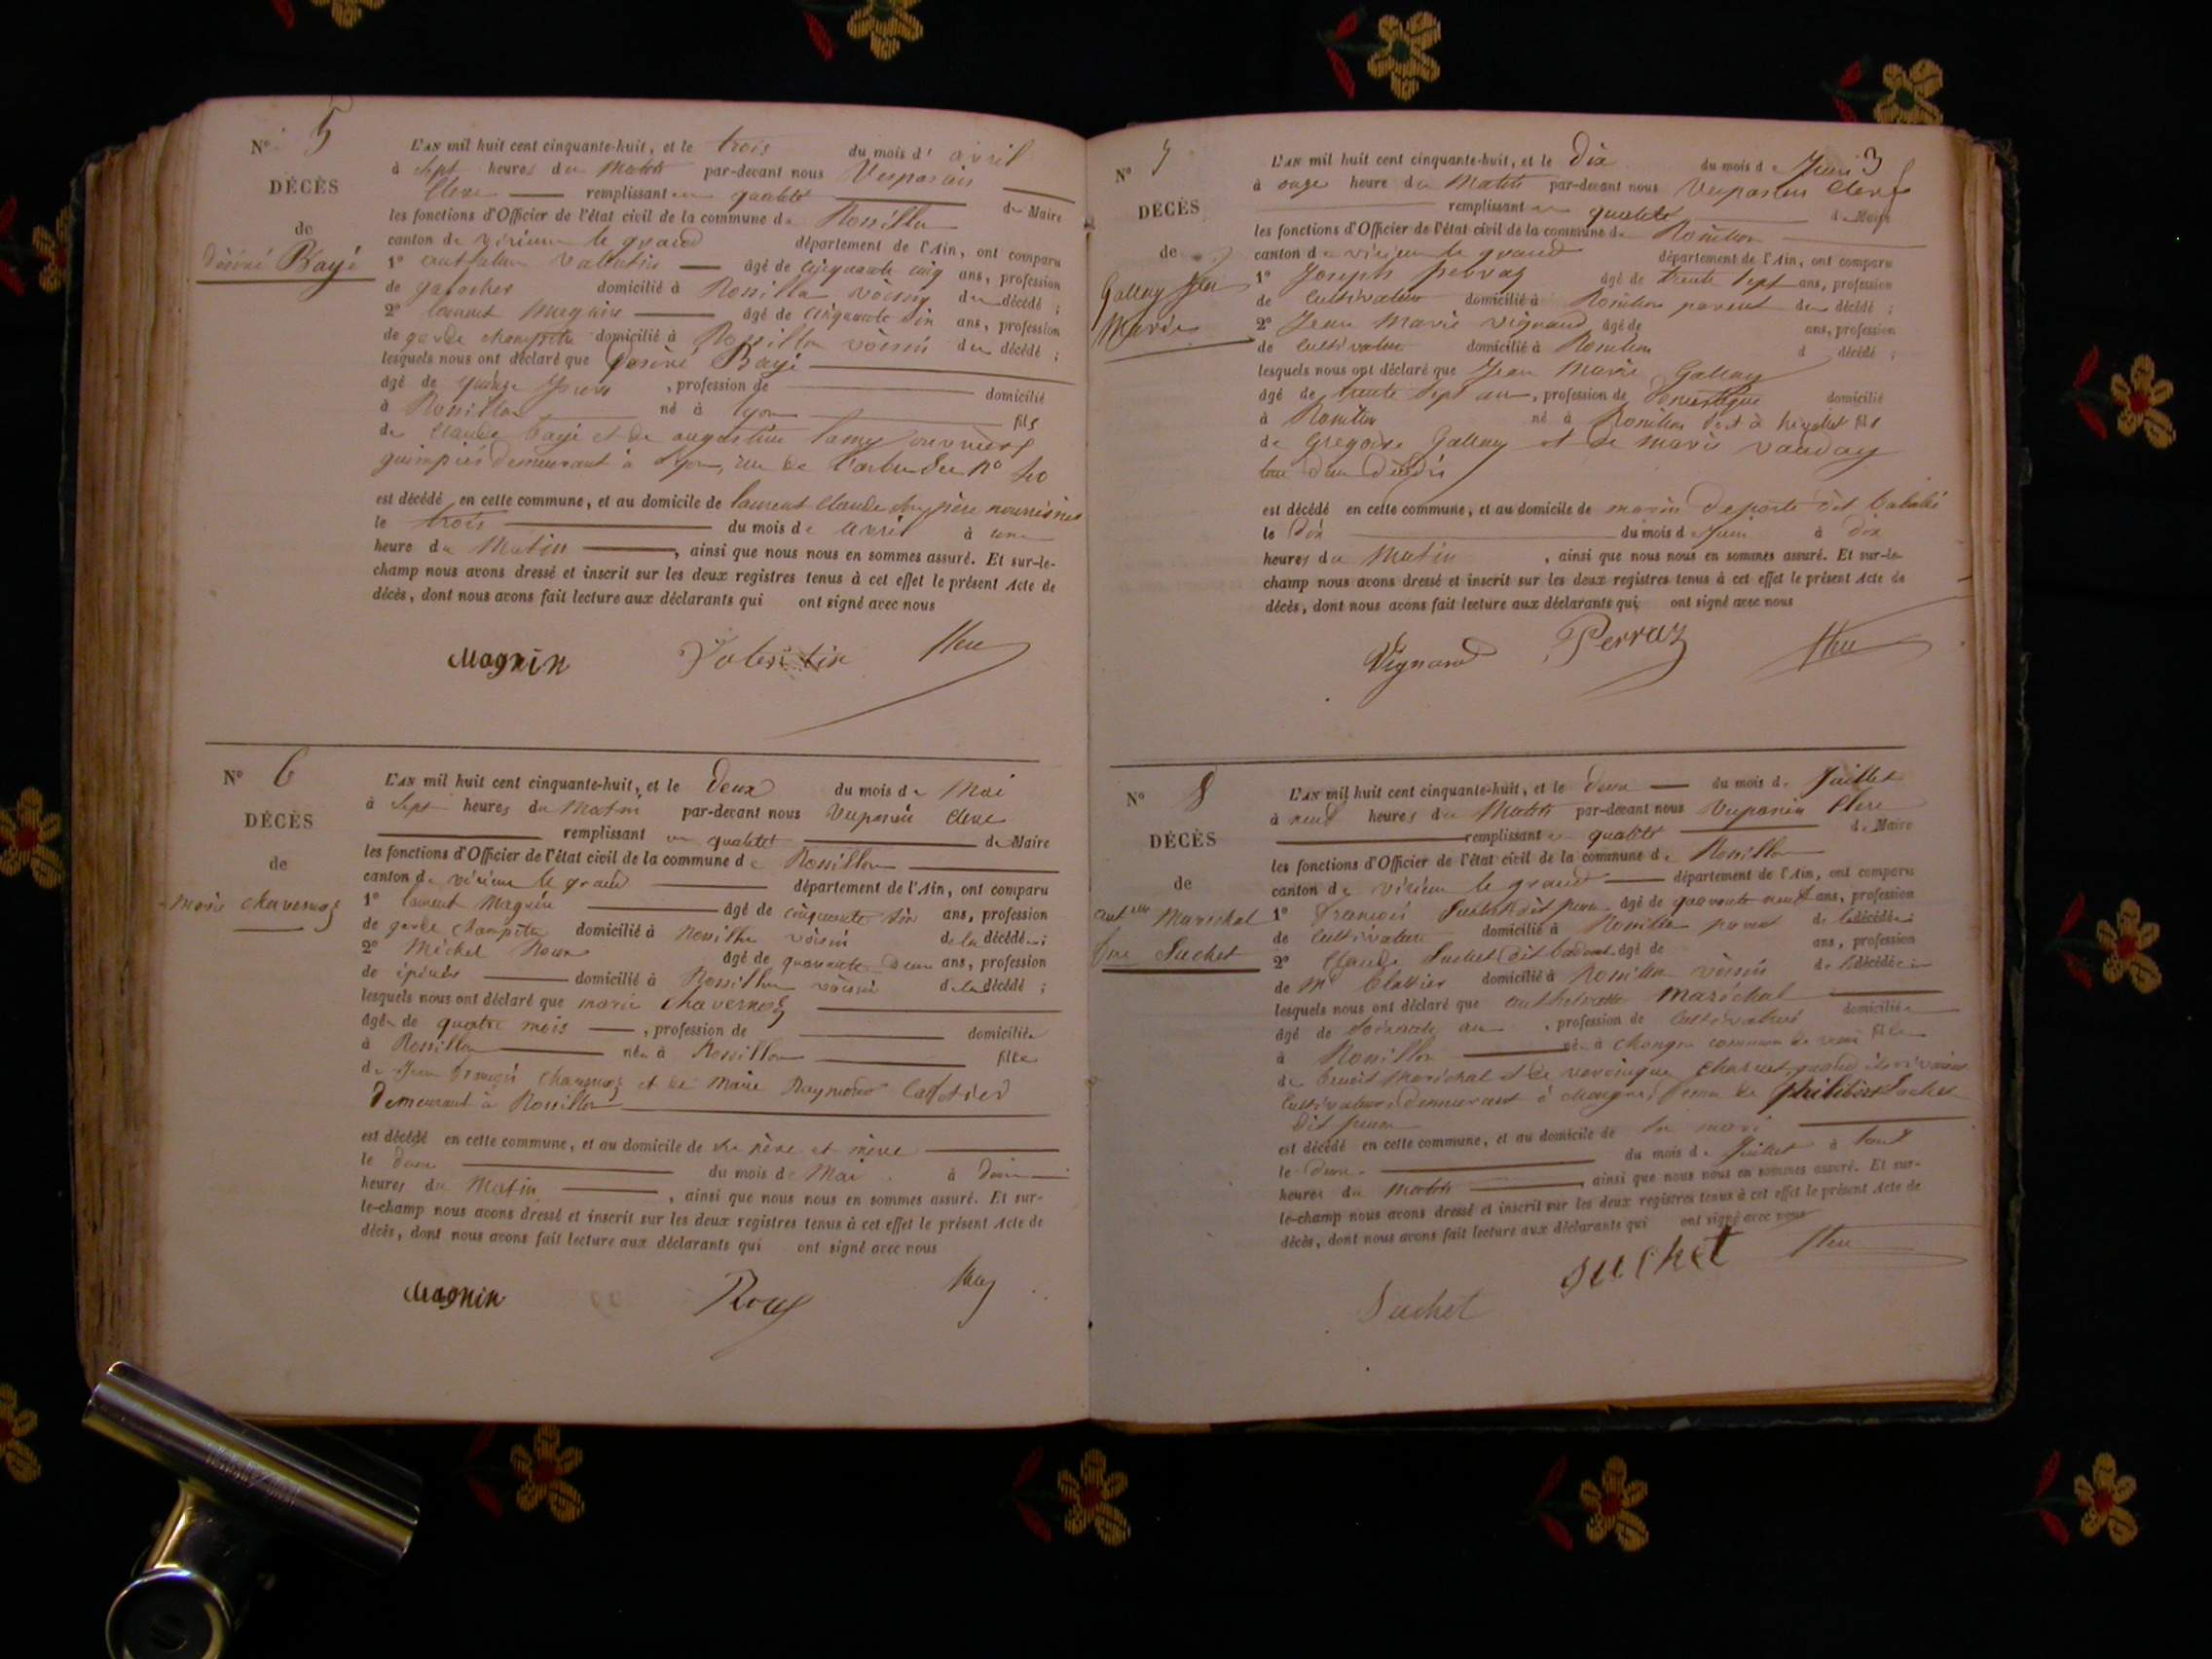 N° 5
DÉCÈS
de
Désiré Bayé
L'AN mil huit cent cinquante-huit, et le trois du mois d' avril
à Sept heures du Matin par-devant nous Vespasien
Clerc remplissant en qualité de Maire
les fonctions d'Officier de l'état civil de la commune de Rossillon
canton de virieu le grand département de l'Ain, ont comparu
1° anthelme Vallentin âgé de cinquante cinq ans, profession
de domicilié à Rossillon voisin du décédé ;
2° laurent magnin âgé de cinquante six ans, profession
de garde champêtre domicilié à Rossillon voisin du décédé ;
lesquels nous ont déclaré que Désiré Bayé
âgé de quinze jours , profession de domicilié
à Rossillon né à lyon fils
de Claude bayé et de augustine lamy ouvriers
guimpiers demeurant à Lyon, rue de l'arbre sec n° 40
est décédé en cette commune, et au domicile de laurent Claude père nourricier
le trois du mois de avril à une
heure du Matin , ainsi que nous nous en sommes assuré. Et sur-le-
champ nous avons dressé et inscrit sur les deux registres tenus à cet effet le présent Acte de
décès, dont nous avons fait lecture aux déclarants qui ont signé avec nous
Magnin Valentin
N° 6
DÉCÈS
de
marie chavernoz
L'AN mil huit cent cinquante-huit, et le Deux du mois de Mai
à Sept heures du Matin par-devant nous Vespasien Clerc
remplissant en qualité de Maire
les fonctions d'Officier de l'état civil de la commune de Rossillon
canton de virieu le grand département de l'Ain, ont comparu
1° laurent Magnin âgé de cinquante six ans, profession
de garde champêtre domicilié à Rossillon voisin de la décédée ;
2° Michel Roux âgé de quarante deux ans, profession
de épicier domicilié à Rossillon voisin de la décédé ;
lesquels nous ont déclaré que marie chavernoz
âgée de quatre mois , profession de domiciliée
à Rossillon née à Rossillon fille
de Jean françois chavernoz et de Marie Raymond
demeurant à Rossillon
est décédé en cette commune, et au domicile de ses père et mère
le deux du mois de Mai à deux
heures du Matin , ainsi que nous nous en sommes assuré. Et sur-
le-champ nous avons dressé et inscrit sur les deux registres tenus à cet effet le présent Acte de
décès, dont nous avons fait lecture aux déclarants qui ont signé avec nous
Magnin Roux
N° 7
DÉCÈS
de
Gallay Jean
Marie
3
L'AN mil huit cent cinquante-huit, et le Dix du mois de Juin
à onze heure du Matin par-devant nous Vespasien Clerc
remplissant en qualité de Maire
les fonctions d'Officier de l'état civil de la commune de Rossillon
canton de virieu le grand département de l'Ain, ont comparu
1° Joseph perraz âgé de trente sept ans, profession
de Cultivateur domicilié à Rossillon parent du décédé ;
2° Jean Marie vignand âgé de ans, profession
de Cultivateur domicilié à Rossillon d décédé ;
lesquels nous ont déclaré que Jean Marie Gallay
âgé de trente sept ans, profession de Domestique domicilié
à Rossillon né à Rossillon fils
de Gregoire Gallay et de marie vauday
tous deux décédés
est décédé en cette commune, et au domicile de marin Deporte dit
le Dix du mois de Juin à dix
heures du Matin , ainsi que nous nous en sommes assuré. Et sur-le-
champ nous avons dressé et inscrit sur les deux registres tenus à cet effet le présent Acte de
décès, dont nous avons fait lecture aux déclarants qui ont signé avec nous
Vignand Perraz
N° 8
DÉCÈS
de
Maréchal
fme Suchet
L'AN mil huit cent cinquante-huit, et le deux du mois de Juillet
à neuf heures du Matin par-devant nous Vespasien Clerc
remplissant en qualité de Maire
les fonctions d'Officier de l'état civil de la commune de Rossillon
canton de virieu le grand département de l'Ain, ont comparu
1° François Suchet dit âgé de quarante neuf ans, profession
de Cultivateur domicilié à Rossillon parent de la décédée ;
2° Claude Suchet dit âgé de ans, profession
de domicilié à Rossillon voisin de la décédée
lesquels nous ont déclaré que Maréchal domiciliée
âgé de soixante ans , profession de Cultivateur
à Rossillon née à commune de fille
de benoit Maréchal et de
Cultivateurs demeurant à femme de philibert Suchet
dit
est décédé en cette commune, et au domicile de son mari
le deux du mois de Juillet à
heures du matin , ainsi que nous nous en sommes assuré. Et sur-
le-champ nous avons dressé et inscrit sur les deux registres tenus à cet effet le présent Acte de
décès, dont nous avons fait lecture aux déclarants qui ont signé avec nous
Suchet Suchet